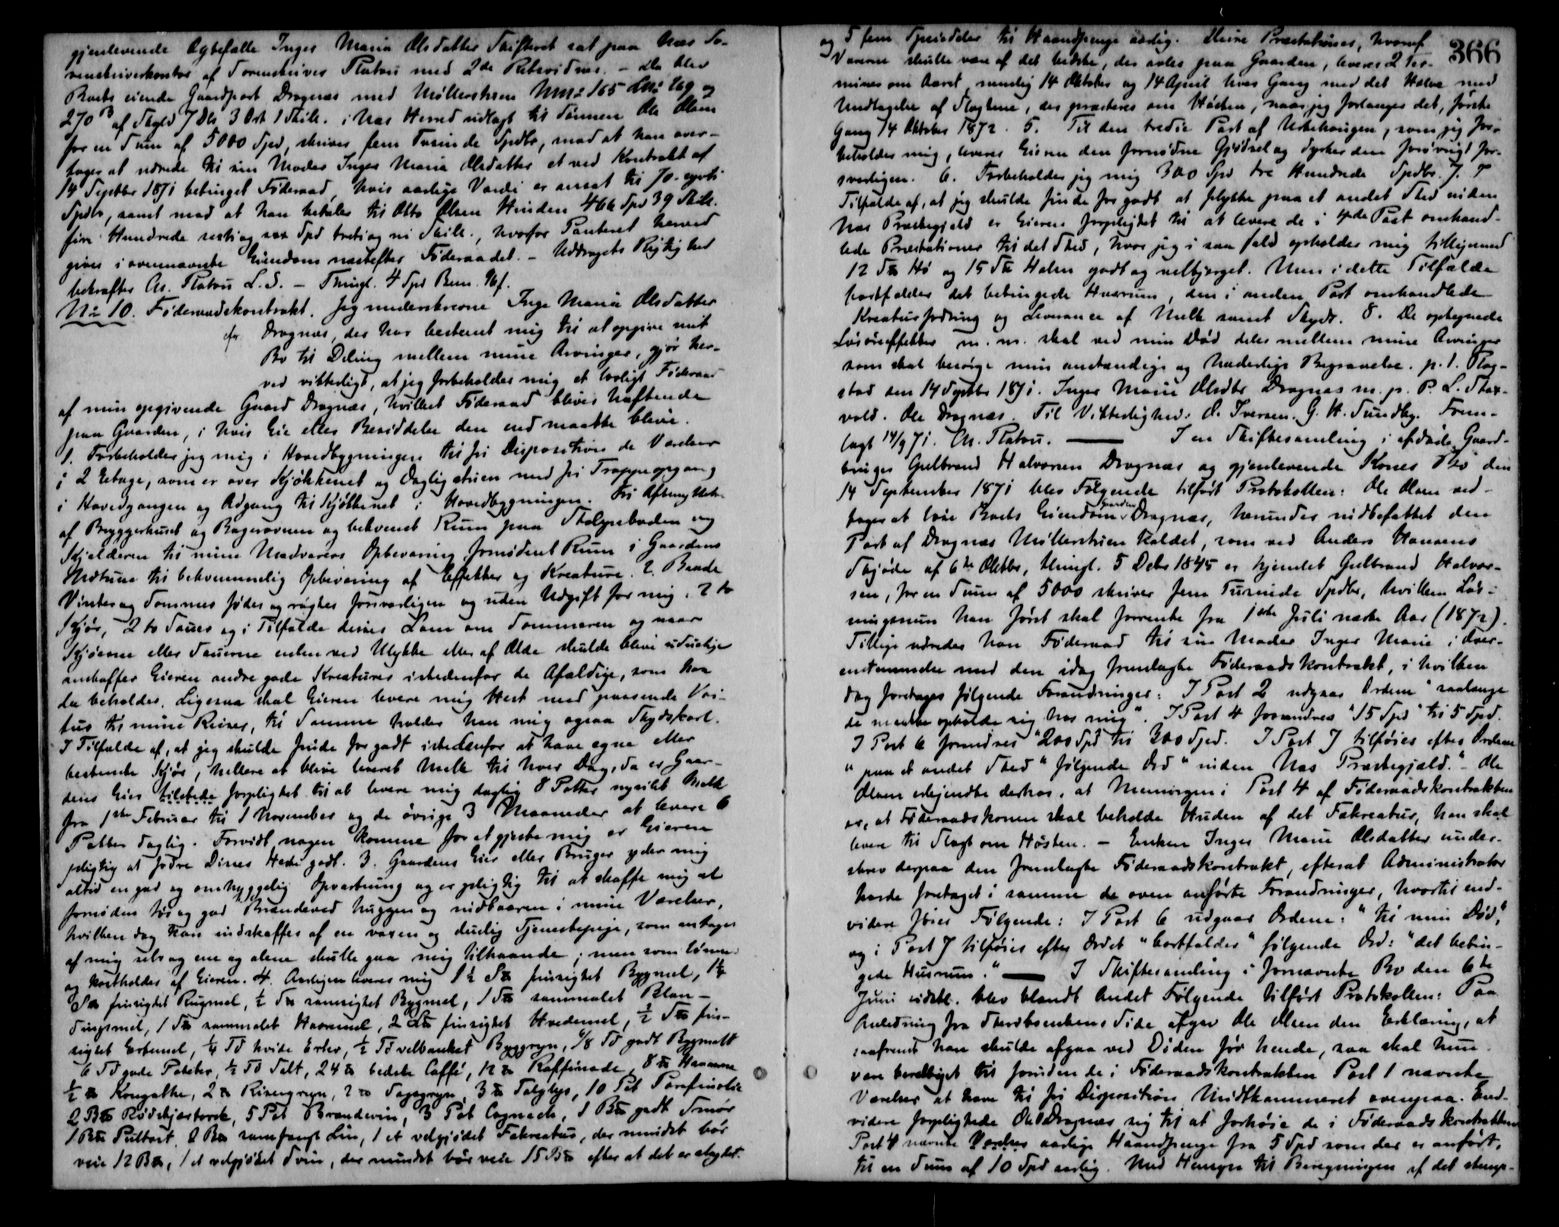 gjenlevende Ægtefælle Inger Maria Olsdatter Skifteret sat paa Næs So-
renskriverkontor af Sorenskriver Platou med 2de Retsvidner. – Da blev
Boets eiende Gaardpart Dragnæs med Møllerstuen No 165 No 169 og
270 B af Skyld 7 Dlr 3 Ort 1 Skill. i Næs Herred udlagt til Sønnen Ole Olsen
for en Sum af 5000 Spd, skriver fem Tusinde Spdlr, mod at han over-
tager at udrede til sin Moder Inger Maria Olsdatter et ved Kontrakt af
14 Septbr 1871 betinget Föderaad, hvis aarlige Værdi er ansat til 70 - sytti
Spdlr, samt mod at han betaler til Otto Olsen Hvinden 466 Spd 39 Skill.
fire Hundrede sexti og sex Spd treti og ni Skill., hvorfor Panteret herved
gives i ovennævnte Eiendom næstefter Föderaadet. – Uddragets Rigtighed
bekræfter Chr. Platou L.S. – Thingl. 4 Spd Bem. Uf.
No 10. Föderaadskontrakt. Jeg underskrevne Inger Maria Olsdatter
Dragnæs, der har bestemt mig til at opgive mit
Bo til Deling mellem mine Arvinger, gjør her-
ved vitterligt, at jeg forbeholder mig et aarligt Föderaad
af min opgivende Gaard Dragnæs, hvilket Föderaad bliver hæftende
paa Gaarden, i hvis Eie eller Besiddelse den end maatte blive.
1. Forbeholder jeg mig i Hovedbygningen til fri Disposition de Værelser
i 2 Etage, som er over Kjøkkenet og Dagligstuen med fri Trappeopgang
i Hovedgangen og Adgang til Kjøkkenet i Hovedbygningen. Fri Afbenyttelse
af Bryggerhuset og Bagerovnen og bekvemt Rum paa Stolpeboden og
Kjælderen til mine Madvarers Opbevaring fornødent Rum i Gaardens
Udhuse til bekvemmelig Opbevaring af Effekter og Kreature. 2. Baade
Vinter og Sommer födes og røgtes forsvarligen og uden Udgift for mig: 2 to
Kjør, 2 to Sauer og i Tilfælde deres Lam om Sommeren og naar
Kjøerne eller Sauerne enten ved Ulykke eller af Ælde skulde blive uduelige
anskaffer Eieren andre gode Kreaturer istedenfor de Afældige, som han
da beholder. Ligesaa skal Eieren levere mig Hest med passende Kjør-
tøi til mine Reiser, til Samme holder han mig ogsaa Skydskarl.
I Tilfælde af, at jeg skulde finde for godt istedenfor at have egne eller
bestemte Kjør, hellere at blive leveret Melk til hver Dag, da er Gaar-
dens Eier tilstede forpligtet til at levere mig daglig 8 Potter nysilet Melk
fra 1ste Februar til 1 November og de øvrige 3 Maaneder at levere 6
Potter daglig. Forvidt nogen komme for at gjæste mig er Eieren
pligtig at fodre Dines Heste godt. 3. Gaardens Eier eller Bruger yder mig
altid en god og omhyggelig Opvartning og er pligtig til at skaffe mig al
fornøden tør og god Brændeved huggen og indbaaren i mine Værelser,
hvilken dog kan indskaffes af en voxen og duelig Tjenestepige, som antages
af mig selv og ene og alene skulle gaa mig tilhaande, men som lønnes
og kostholdes af Eieren. 4. Aarligen leveres mig 1½ Td finsigtet Bygmel, 1½
Td finsigtet Rugmel, ½ Td samsigtet Bygmel, 1 Td sammalet Blan-
dingsmel, 1 Td sammalet Havremel, 2 Ld finsigtet Hvedemel, ½ Td fin-
sigtet Ertemel, ¼ Td hvide Erter, ½ Td velbanket Byggryn, 1/8 Td godt Bygmalt
6 Td gode Poteter, ½ Td Salt, 24 ℔ bedste Caffé, 12 ℔ Raffinade, 8 ℔
½ ℔ Kongethe, 2 ℔ Risengryn, 2 ℔ Sagogryn, 3 ℔ Talglys, 10 Pot Parafinolie
2 B℔ Rødskjærtorsk, 5 Pot Brændeviin, 3 Pot Cognach, 1 B℔ godt Smør
1 B℔ Pultost, 2 B℔ Lin, 1 et velgjødet Fækreatur, der mindst bør
veie 12 B℔, 1 et velgjødet Sviin, der mindst bør veie 15 B℔ efter at det er slagtet
366
og 5 fem Speciedaler til Haandpenge aarlig. Disse Præstationer, hvoraf
Varerne skulle være af det bedste, der avles paa Gaarden, leveres 2 Ter-
miner om Aaret, nemlig 14 Oktober og 14 April hver Gang med det Halve med
Undtagelse af Slagtene, der præsteres om Høsten, naar jeg forlanger det, første
Gang 14 Oktober 1872. 5. Til den tredie Part af Urtehaugen, som jeg for-
beholder mig, leverer Eieren den fornødne Gjødsel og dyrker den forøvrigt for-
svarligen. 6. Forbeholder jeg mig 300 Spd tre Hundrede Spdlr. 7. I
Tilfælde af, at jeg skulde finde for godt at flytte paa et andet Sted inden
Næs Præstegjæld er Eieren forpligtet til at levere de i 4de Post omhand-
lede Præstationer til det Sted, hvor jeg i saa fald opholder mig tilligemed
12 S℔ Hø og 15 S℔ Halm godt og velbjerget. Men i dette Tilfælde
bortfalder det betingede Husrum, den i anden Post omhandlede
Kreaturfodring og Leverance af Melk samt Skyds. 8. De optegnede
Løsøreffekter m. m. skal ved min Død deles mellem mine Arvinger
som skal besørge min anstændige og hæderlige Begravelse. p. t. Flag-
stad den 14 Septbr 1871. Inger Marie Olsdtr Dragnæs m. p. P. L. Stax-
vold. Ole Dragnæs. Til Vitterlighed: O. Iversen. G. H. Sundby. Frem-
lagt 14/9 71. Chr. Platou. —— I en Skiftesamling i afdøde Gaard-
bruger Gulbrand Halvorsen Dragnæs og gjenlevende Kones Bo den
14 September 1871 blev Følgende tilført Protokollen: Ole Olsen ved-
tager at løse Boets Eiendom Gaarden Dragnæs, herunder indbefattet den
Part af Dragnæs Møllerstuen kaldet, som ved Anders Hansens
Skjøde af 6te Oktbr, thingl. 5 Debr 1845 er hjemlet Gulbrand Halvor-
sen, for en Sum af 5000 skriver fem Tusinde Spdlr, hvilken Løs-
ningssum han først skal forrente fra 1ste Juli næste Aar (1872).
Tillige udreder han Föderaad til sin Moder Inger Marie i Over-
enstemmelse med den idag fremlagte Föderaadskontrakt, i hvilken
dog foretages følgende Forandringer: I Post 2 udgaar Ordene "saalænge
de maatte opholde sig hos mig". I Post 4 forandres "15 Spd" til 5 Spd.
I Post 6 forandres "200 Spd" til 300 Spd. I Post 7 tilføies efter Ordene
"paa et andet Sted" følgende Ord "inden Næs Præstegjæld." – Ole
Olsen erkjendte derhos, at Meningen i Post 4 af Föderaadskontrakten
er, at Föderaadskonen skal beholde Huden af det Fækreatur, han skal
levere til Slagt om Høsten. – Enken Inger Marie Olsdatter under-
skrev derpaa den fremlagte Föderaadskontrakt, efterat Administrator
havde foretaget i samme de oven anførte Forandringer, hvortil end-
videre føies Følgende: I Post 6 udgaar Ordene: "til min Død",
og i Post 7 tilføies efter Ordet "bortfalder" følgende Ord: "det betin-
gede Husrum." —— I Skiftesamling i fornævnte Bo den 6te
Juni sidstl. blev blandt Andet Følgende tilført Protokollen: Paa
Anledning fra Sterboenkens Side afgav Ole Olsen den Erklæring, at
saafremt han skulde afgaa ved Döden før hende, saa skal hun
være berettiget til foruden de i Föderaadskontrakten Post 1 nævnte
Værelser at have til fri Disposition Midtkammeret ovenpaa. End-
videre forpligtede Ole Dragnæs sig til at forhøie de i Föderaadskontrakten
Post 4 nævnte Værelser aarlige Haandpenge fra 5 Spd som der er anført,
til en Sum af 10 Spd aarlig. Med Hensyn til Beregningen af det stemp-